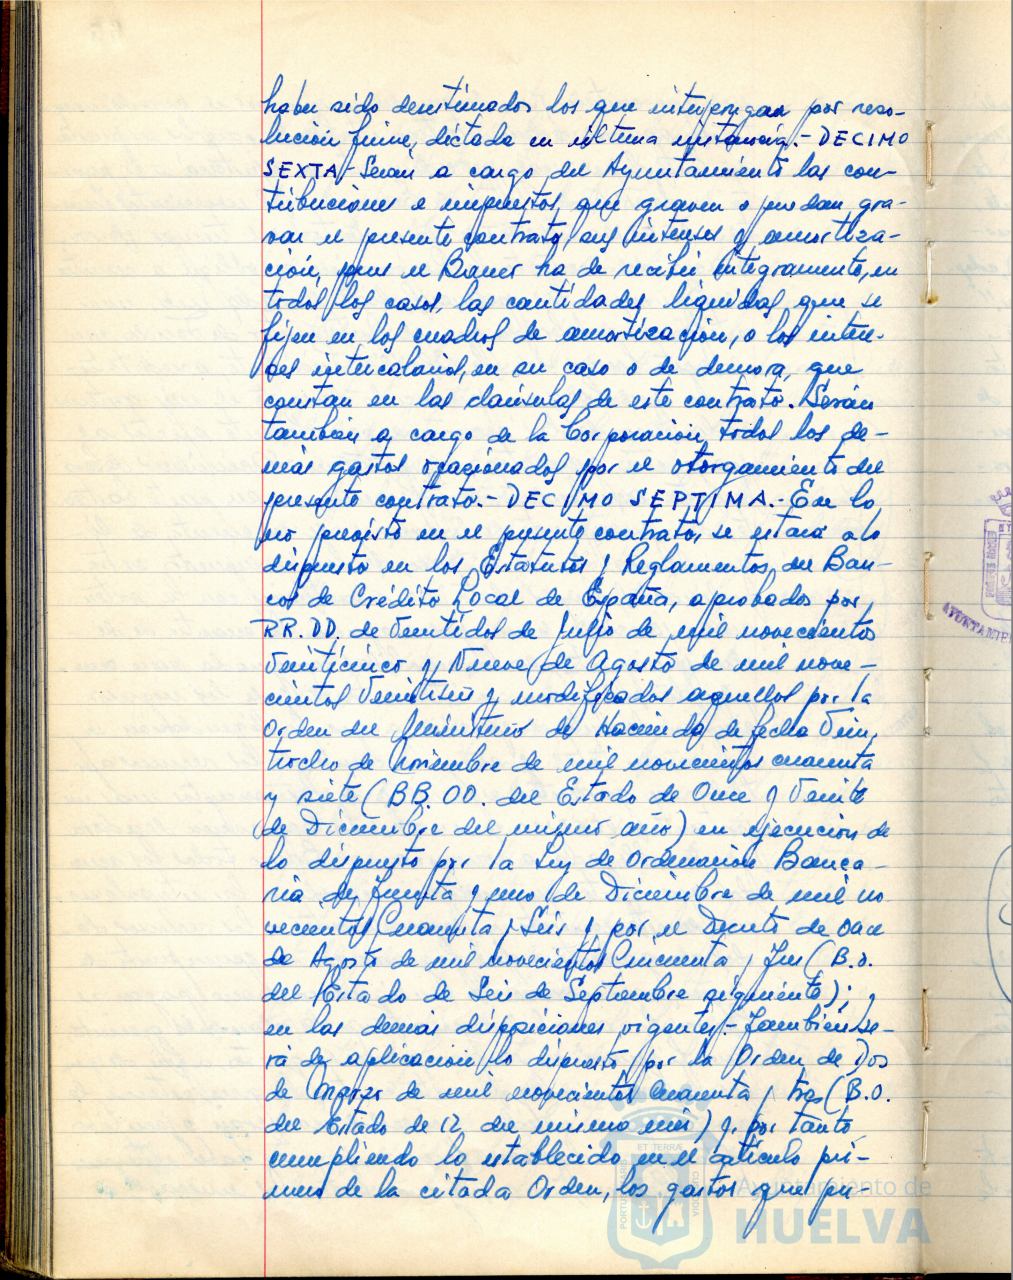 haber sido desestimados los que interpongan por reso-
lución firme, dictada en última instancia.- DECIMO
SEXTA.- Serán a cargo del Ayuntamiento las con-
tribuciones e impuestos que graven o puedan gra-
var el presente contrato, sus intereses y amortiza-
ción, pues el Banco ha de recibir íntegramente, en
todos los casos, las cantidades líquidas, que se
fijen en los cuadros de amortización, o los intere-
ses intercalarios, en su caso o de demora, que
constan en las cláusulas de este contrato. Serán
también a cargo de la Corporación, todos los de-
más gastos ocasionados por el otorgamiento del
presente contrato.- DECIMO SEPTIMA.- En lo
no previsto en el presente contrato, se estará a lo
dispuesto en los Estatutos y Reglamentos del Ban-
co de Crédito Local de España, aprobados por
RR.DD. de Veintidos de Julio de mil novecientos
Veinticinco y Nueve de Agosto de mil nove-
cientos Veintiseis y modificados aquellos por la
Orden del Ministerio de Hacienda de fecha Vein-
tiocho de Noviembre de mil novecientos cuarenta
y siete (BB.OO. del Estado de Once y Veinte
de Diciembre del mismo año) en ejecución de
lo dispuesto por la Ley de Ordenación Banca-
ria de Treinta y uno de Diciembre de mil no-
vecientos Cuarenta y Seis y por el Decreto de once
de Agosto de mil novecientos Cincuenta y Tres (B.O.
del Estado de Seis de Septiembre siguiente); y
en las demás disposiciones vigentes.- También se-
rá de aplicación lo dispuesto por la Orden de Dos
de Marzo de mil novecientos Cuarenta y tres (B.O.
del Estado de 12 del mismo mes) y, por tanto,
cumpliendo lo establecido en el artículo pri-
mero de la citada Orden, los gastos que pu-
AYUNTAMIE
Ayuntamiento de
HUELVA